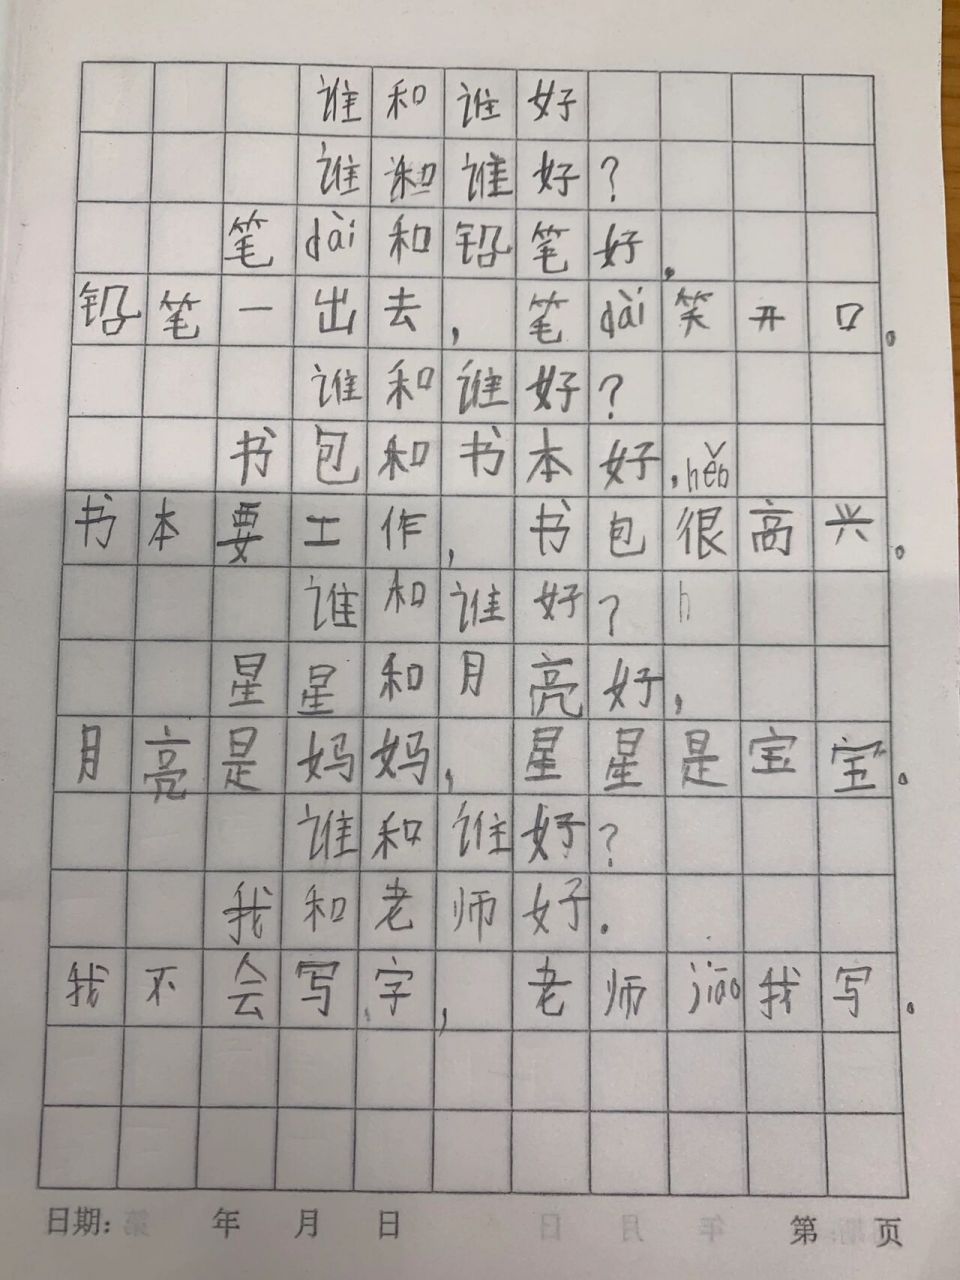 谁和谁好
谁和谁好?
笔dài和铅笔好.
铅笔一出去,笔dài笑开口。
谁和谁好?
书包和书本好.hěn
书本要工作,书包很高兴。
谁和谁好? h
星星和月亮好,
月亮是妈妈,星星是宝宝。
谁和谁好?
我和老师好.
我不会写字,老师jiāo我写。
日期: 年 月 日 第 页